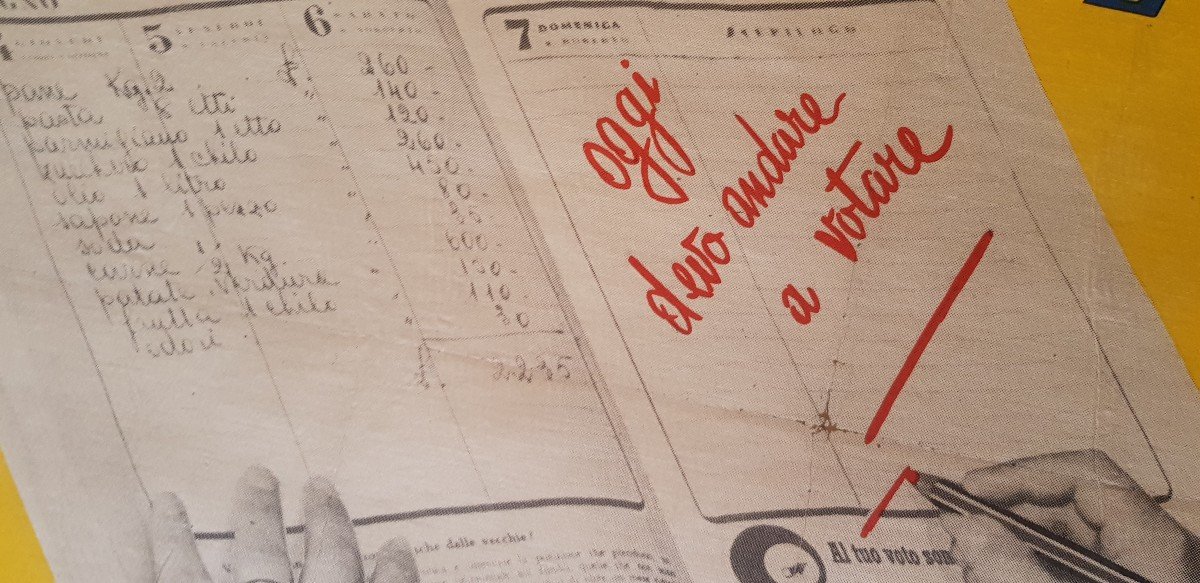 5 6 SABATO
pane Kg. 2 £. 260.-
pasta etti " 140.-
parmigiano 1 etto " 120.-
zucchero 1 chilo " 260.-
olio 1 litro " 450.-
sapone 1 pezzo " 80.-
soda "
carne Kg. " 600.-
patate verdura " 150.-
frutta 1 chilo " 110.-
odori " 30
£. 2.235
7 DOMENICA
S. ROBERTO
RIEPILOGO
oggi
devo andare
a votare
sche delle vecchie!
Al tuo voto son